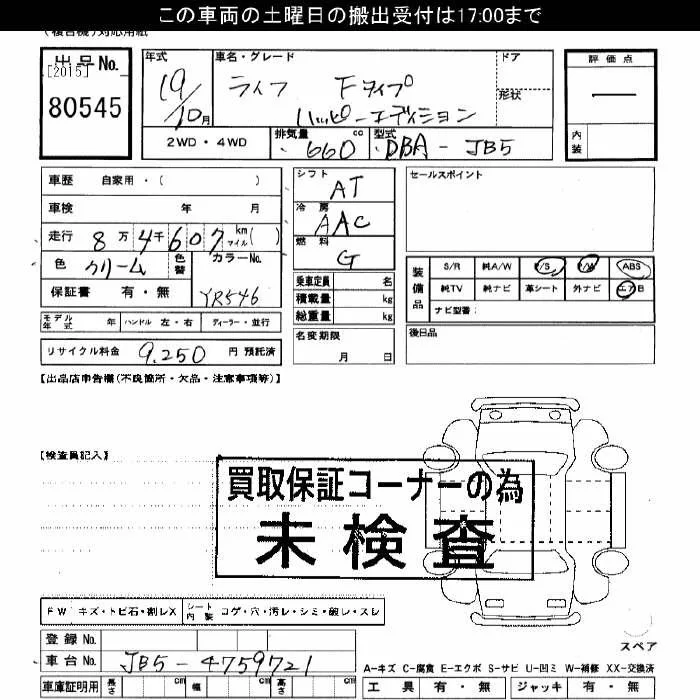 この車両の土曜日の搬出受付は17:00まで
(複合機)対応用紙
出品No.
[2015]
80545
年式
19/10月
車名・グレード
ライフ Fタイプ
ハッピーエディション
ドア
形状
評価点
―
内装
2WD・4WD
排気量 660 cc
型式 DBA-JB5
車歴 自家用・( )
車検 年 月
走行 8万4千607 km マイル( )
色 クリーム 色替 カラーNo. YR546
保証書 有・無
モデル年式 年 ハンドル 左・右 ディーラー・並行
リサイクル料金 9,250 円 預託済
シフト AT
冷房 AAC
燃料 G
乗車定員 名
積載量 kg
総重量 kg
名変期限
月 日
セールスポイント
装備品
S/R 純A/W P/S P/W ABS
純TV 純ナビ 革シート 外ナビ エアB
ナビ型番:
後日品
【出品店申告欄(不良箇所・欠品・注意事項等)】
【検査員記入】
買取保証コーナーの為
未検査
FW キズ・トビ石・割レX シート内装 コゲ・穴・汚レ・シミ・破レ・スレ
登録No.
車台No. JB5-4759721
車庫証明用 長さ cm 幅 cm 高さ cm
スペア
A-キズ C-腐食 E-エクボ S-サビ U-凹ミ W-補修 XX-交換済
工具 有・無 ジャッキ 有・無